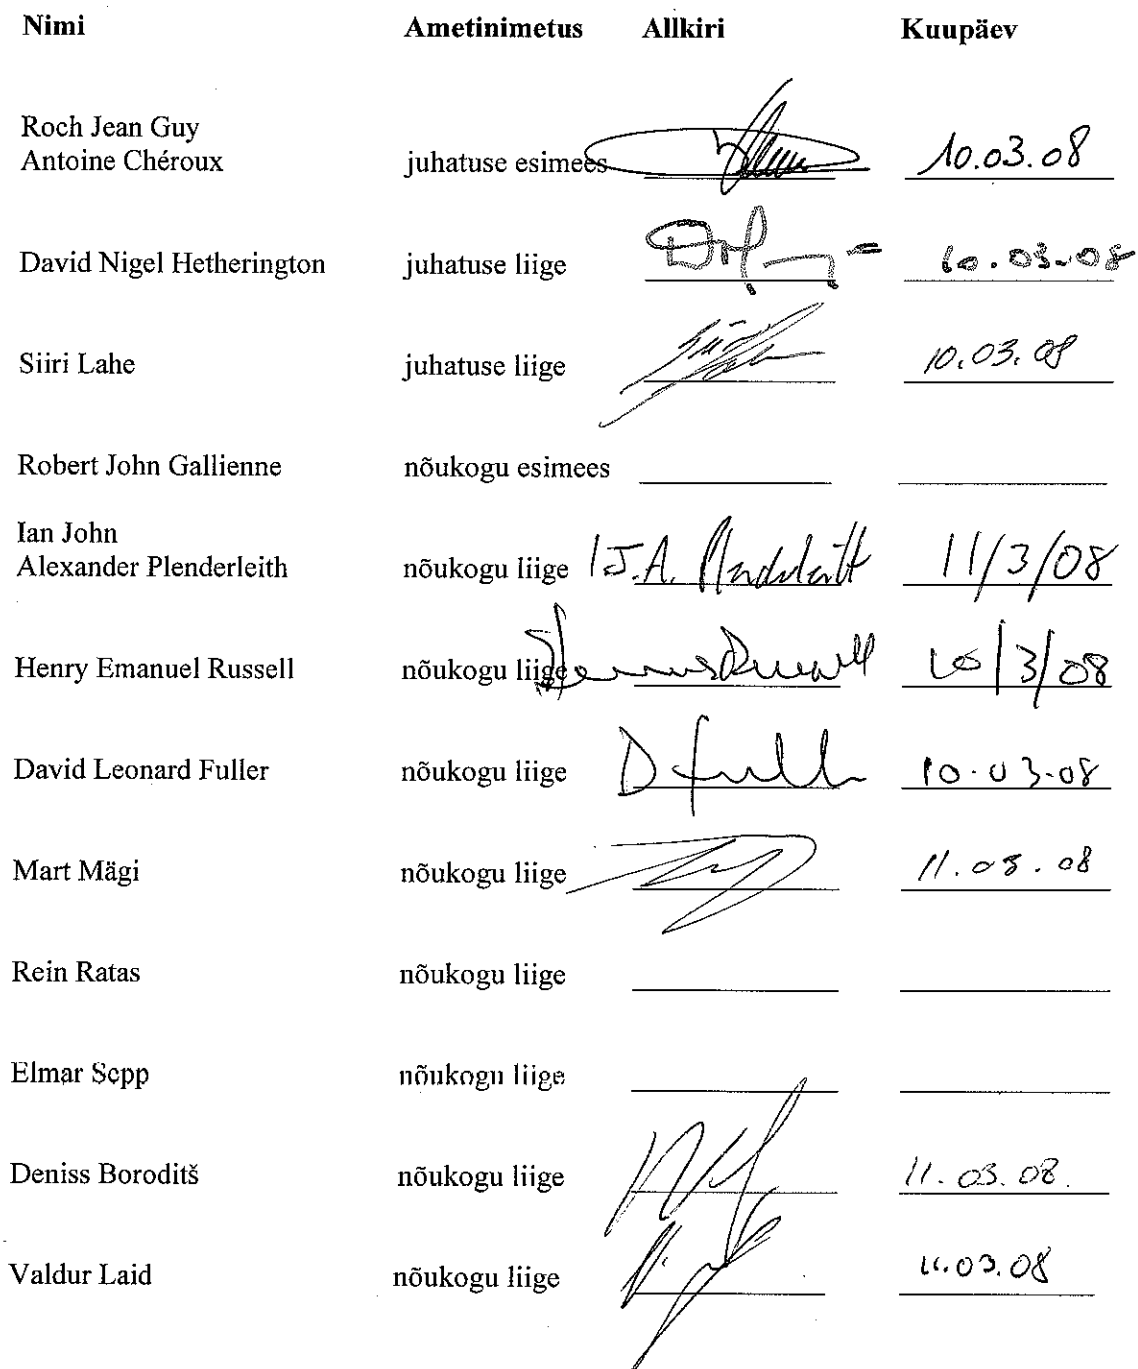 Nimi Ametinimetus Allkiri Kuupäev
Roch Jean Guy
Antoine Chéroux juhatuse esimees 10.03.08
David Nigel Hetherington juhatuse liige 10.03.08
Siiri Lahe juhatuse liige 10.03.08
Robert John Gallienne nõukogu esimees
Ian John
Alexander Plenderleith nõukogu liige I.J.A. Plenderleith 11/3/08
Henry Emanuel Russell nõukogu liige 10/3/08
David Leonard Fuller nõukogu liige D Fuller 10.03.08
Mart Mägi nõukogu liige 11.03.08
Rein Ratas nõukogu liige
Elmar Sepp nõukogu liige
Deniss Boroditš nõukogu liige 11.03.08.
Valdur Laid nõukogu liige 11.03.08